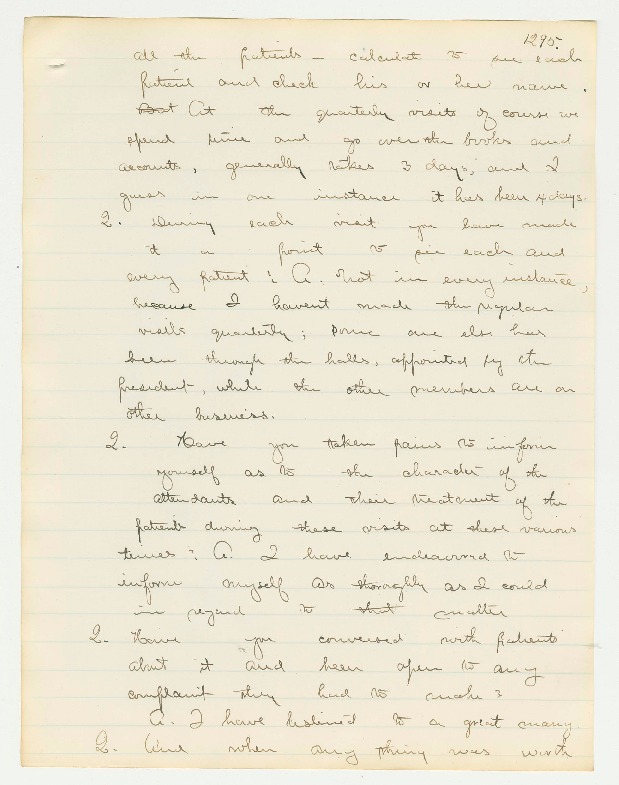 1295.
all the patients - calculate to see each
patient and check his or her name.
But A At the quarterly visits of course we
spend time and go over the books and
accounts, generally takes 3 days, and I
guess in one instance it has been 4 days.
Q. During each visit you have made
it a point to see each and
every patient? A. Not in every instance,
because I havent made the regular
visits quarterly; some one else has
been through the halls, appointed by the
president, while the other members are on
other business.
Q. Have you taken pains to inform
yourself as to the character of the
attendants and their treatment of the
patients during these visits at these various
times? A. I have endeavored to
inform myself as thoroughly as I could
in regard to that matter
Q. Have you conversed with patients
about it and been open to any
complaint they had to make?
A. I have listened to a great many.
Q. And when any thing was worth